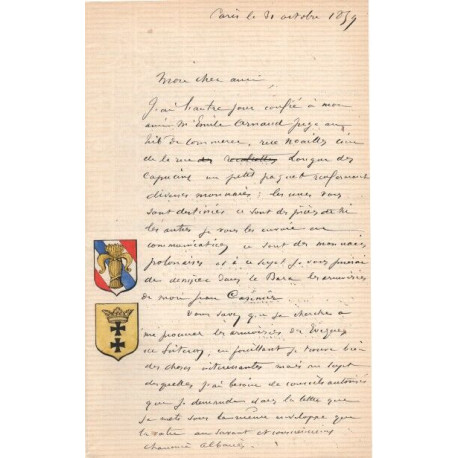 Paris le 21 octobre 1859
Mon cher ami,
J'ai l'autre jour confié à mon
ami Mr Emile Arnaud Juge au
de commerce, rue Noailles coin
de la rue des Longue des
Capucins un petit paquet renfermant
diverses monnaies ; les unes vous
sont destinées ce sont des pièces de
les autres je vous les envoie en
communication ce sont des monnaies
polonaises et à ce sujet je vous prierai
de dans le les armoiries
de mon Jean Casimir.
Vous savez que je cherche à
me procurer les armoiries des Evêques
de , en fouillant je trouve bien
des choses intéressantes mais au sujet
desquelles j'ai besoin de conseils autorisés
que je demande dans la lettre que
je mets sous la même enveloppe que
la votre au savant et
chanoine Albanès.